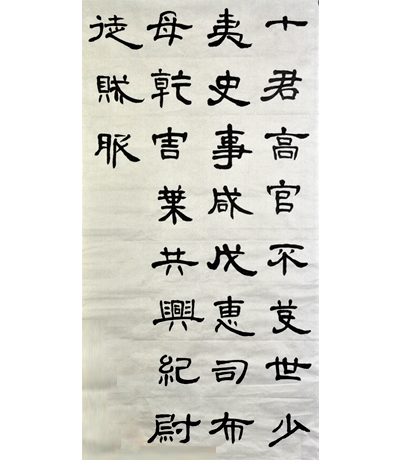 十君高官不世少
夷史事咸戊惠司布
母乾害葉共興紀尉
徒服